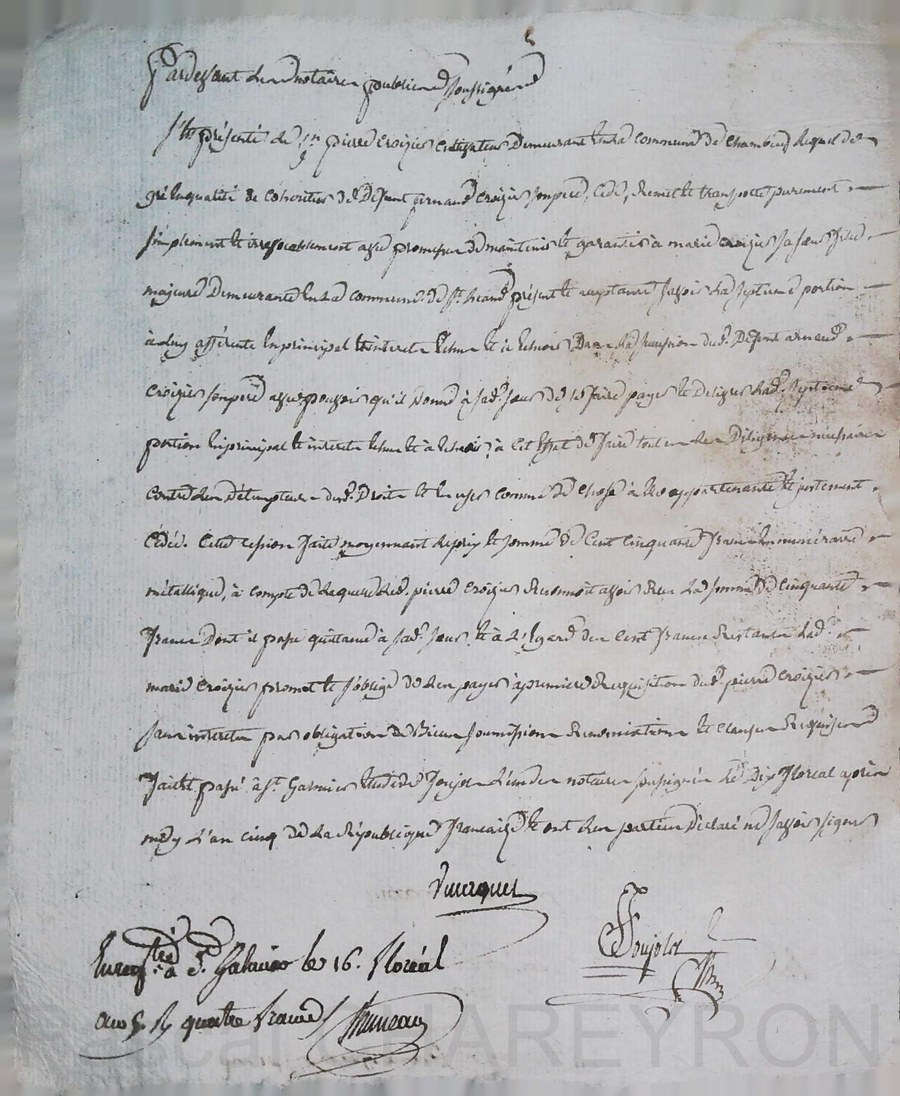 Pardevant les notaires publics soussignés
S'est présenté le Sr. pierre Croizier cultivateur Demeurant en la commune de Chambeuf lequel de
gré en qualité de cohéritier de Défunt arnaud Croizier son pere, Cède, remet et transporte purement
simplement et irrevocablement avec promesse de maintenir et garantir à marie croizier sa soeur fille
majeure Demeurante en lad commune de St. présente et acceptante savoir La septieme portion
à luy afférente En principal et interets Echus et à Echeoir, Dans La succession dud. Défunt arnaud
Croizier son pere avec pouvoir qu'il Donne à sad. soeur de se faire payer et Delivrer Lad. septieme
portion En principal et interets Echus et à Echeoir, à Cet Effet de faire toutes les Diligences necessaires
contre les Détempteurs dud. Droits et En user comme de chose à Elle appartenante et justement
Cédée. Cette cession faite moyennant Le prix et somme de Cent Cinquante francs En numéraire
métallique, à compte de Laquelle Led. pierre Croizier Reconnoit avoir Reçu La somme de Cinquante
francs Dont il passe quittance à sad. soeur, et à L'Egard des Cent francs Restants Lad.
marie Croizier promet et s'oblige de les payer à premiere Requisition dud. pierre Croizier
sans interets par obligation de Biens soumissions Renonciations et clauses Requises
fait et passé à St. Garmier Etude de foujols L'un des notaires soussignés le Dix floreal après
midy L'an cinq de La République française, et ont Les parties Déclaré ne savoir signer
foujols
Enregtré. à St. Galmier le 16. floréal
an 5. R quatre francs
Pascal MAREYRON